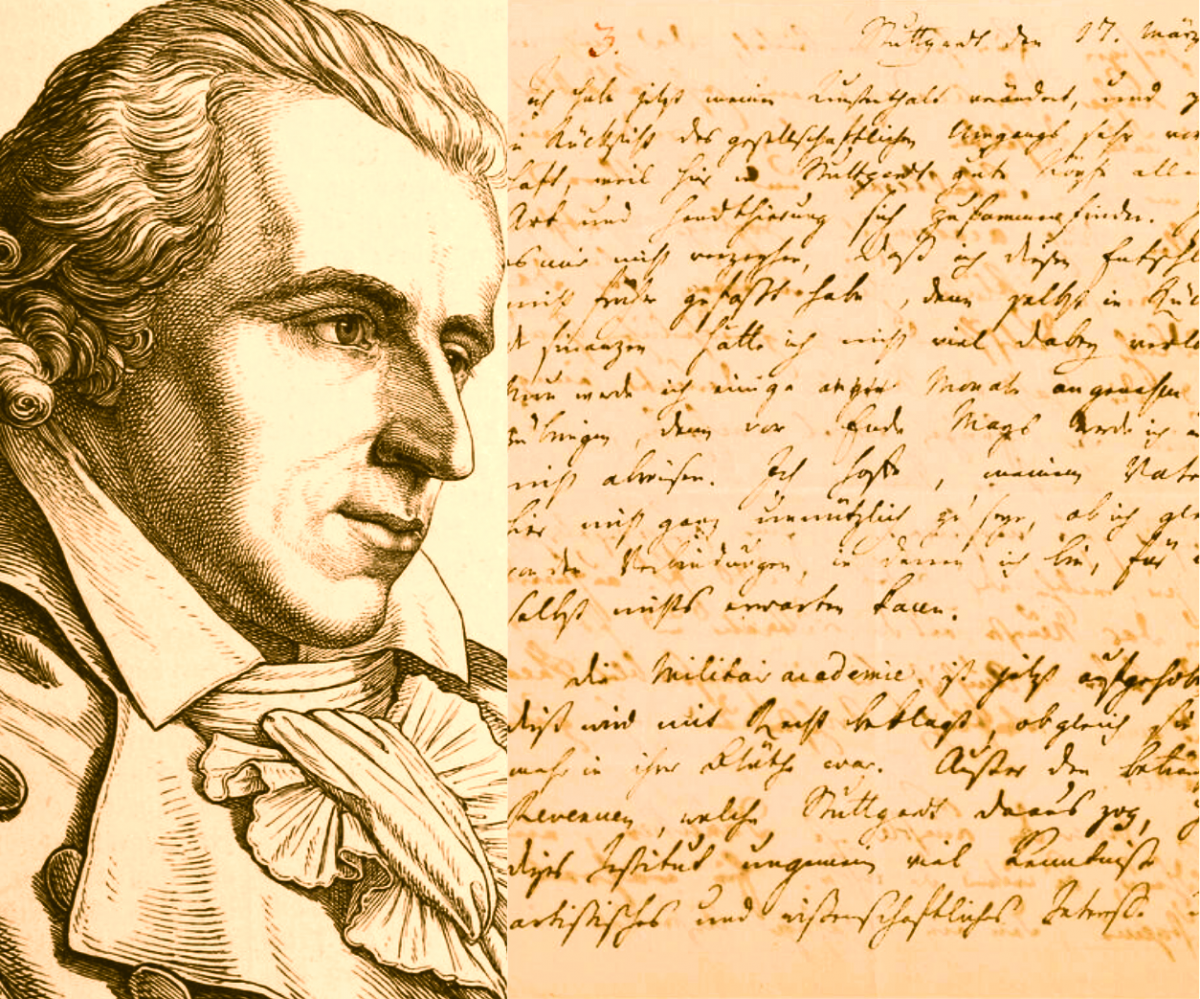 3. Stuttgardt den 17. März
ich habe jetzt meinen Aufenthalt verändert, und
Rücksicht des gesellschaftlichen Umgangs sehr
haft, weil hier in Stuttgardt gute Köpfe alle
Art und Handthierung sich zusammenfinden.
es mir nicht verzeyhen, daß ich diesen Entschl
nicht früher gefaßt habe, denn selbst in Rüc
Finanzen hätte ich nicht viel dabey verlo
Nun werde ich einige Monate angenehm
zubringen, denn vor Ende Mays werde ich
nicht abreisen. Ich hoffe, meinem Vate
hier nicht ganz unnützlich zu seyn, ob ich gle
von den Verbindungen, in denen ich bin, für
selbst nichts erwarten kann.
Die Militairacademie ist jetzt aufgehob
dieß wird mit Recht beklagt, obgleich sie
mehr in ihrer Blüthe war. Außer den beträ
Revenuen, welche Stuttgardt daraus zog,
dieses Institut ungemein viel Kenntniße
artistisches und wißenschaftliches Intereße